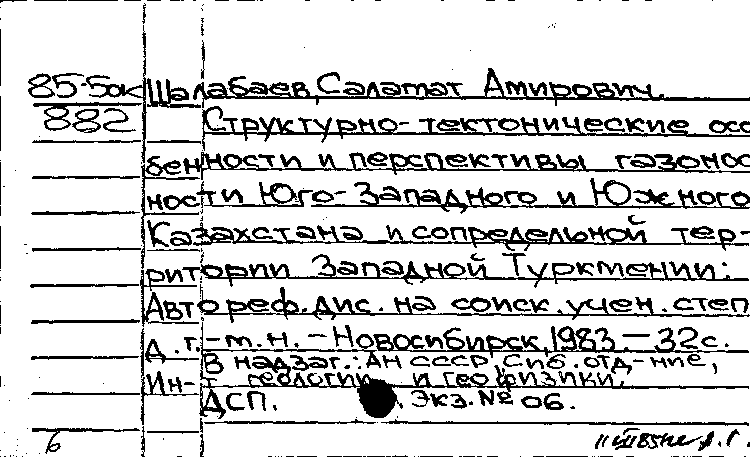 85-5ок Шалабаев, Саламат Амирович.
882 Структурно-тектонические осо
бенности и перспективы газонос
ности Юго-Западного и Южного
Казахстана и сопредельной тер-
ритории Западной Туркмении:
Автореф. дис. на соиск. учен. степ
д. г.-м.н. - Новосибирск, 1983. - 32с.
В надзаг.: АН СССР, Сиб. отд-ние,
Ин-т геологии и геофизики.
ДСП. Экз. № 06.
6